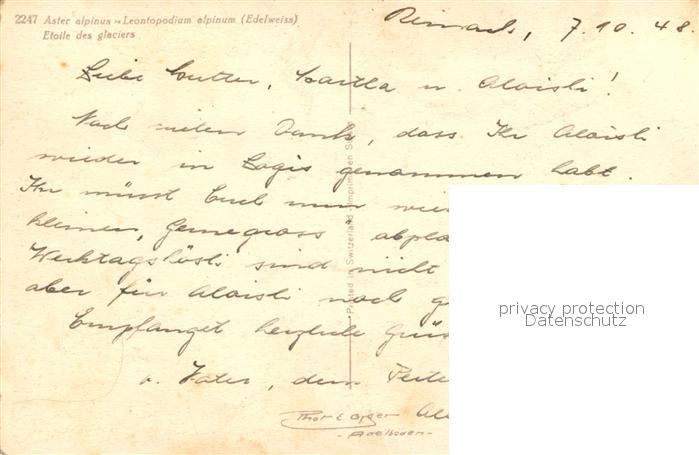 2247 Aster alpinus - Leontopodium alpinum (Edelweiss)
Etoile des glaciers
7. 10. 48.
Liebe Mutter, Martha u. Aloisli!
Noch vielen Dank, dass Ihr Aloisli
wieder in Logis genommen habt.
Ihr müsst Euch nun
kleinen, Gernegross"
Werktagshösli sind nicht
aber für Aloisli noch
Empfanget herzliche
u. Vater, dem
Phot. E. Gyger
- Adelboden -
Printed in Switzerland Imprimé en Suisse
privacy protection
Datenschutz